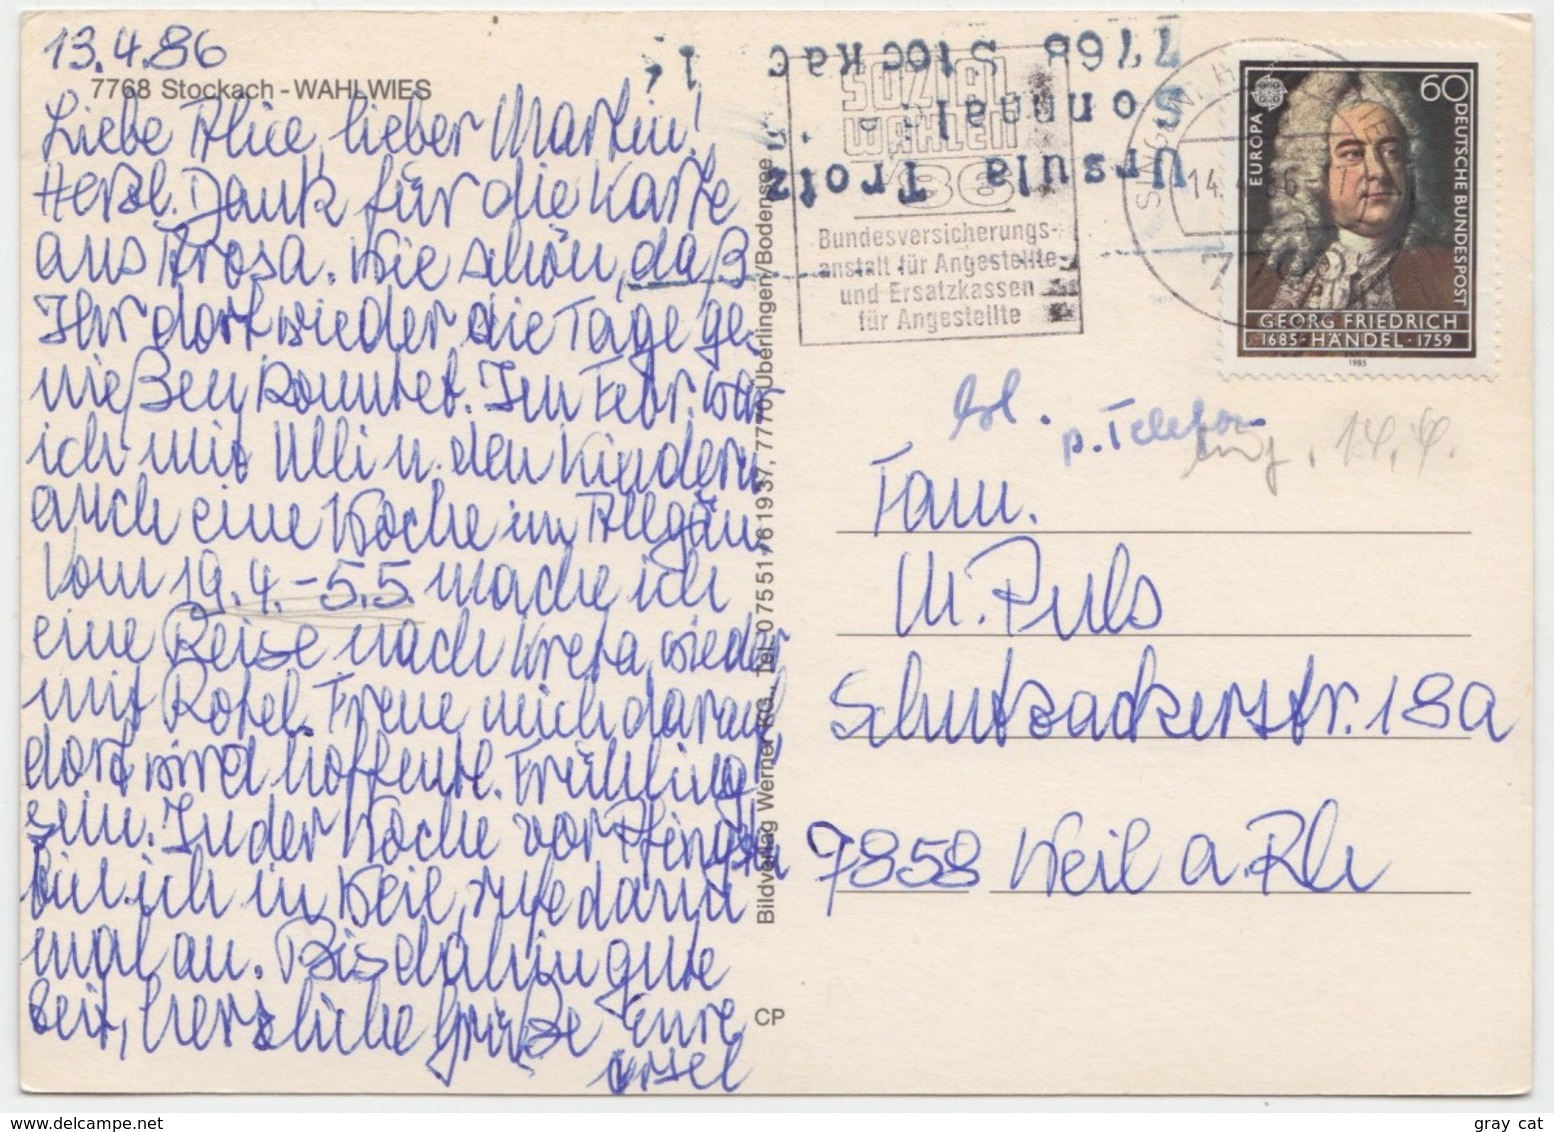 13.4.86
7768 Stockach - WAHLWIES
Liebe Alice, lieber Martin!
Herzl. Dank für die Karte
aus Arosa. Wie schön, daß
Ihr dort wieder die Tage ge-
nießen konntet. Im Febr. war
ich mit Ulli u. den Kindern
auch eine Woche im Allgäu
Vom 19.4. - 5.5. mache ich
eine Reise nach Kreta, wieder
mit Rotel. Freue mich darauf
dort wird hoffentl. Frühling
sein. In der Woche vor Pfingsten
bin ich in Weil, rufe dann
mal an. Bis dahin gute
Zeit, herzliche Grüße Eure
Ursel
Bildverlag Werner KG., Tel. 07551/61937, 7770 Überlingen/Bodensee
CP
Ursula Trotz
7768 Stockac
SOZIAL
WAHLEN
'86
Bundesversicherungs-
anstalt für Angestellte
und Ersatzkassen
für Angestellte
14.4.86
EUROPA
60
DEUTSCHE BUNDESPOST
GEORG FRIEDRICH
1685 · HÄNDEL · 1759
1985
p. Telefon
14.4.
Fam.
M. Puls
Schutzackerstr. 18a
7858 Weil a. Rh
gray cat